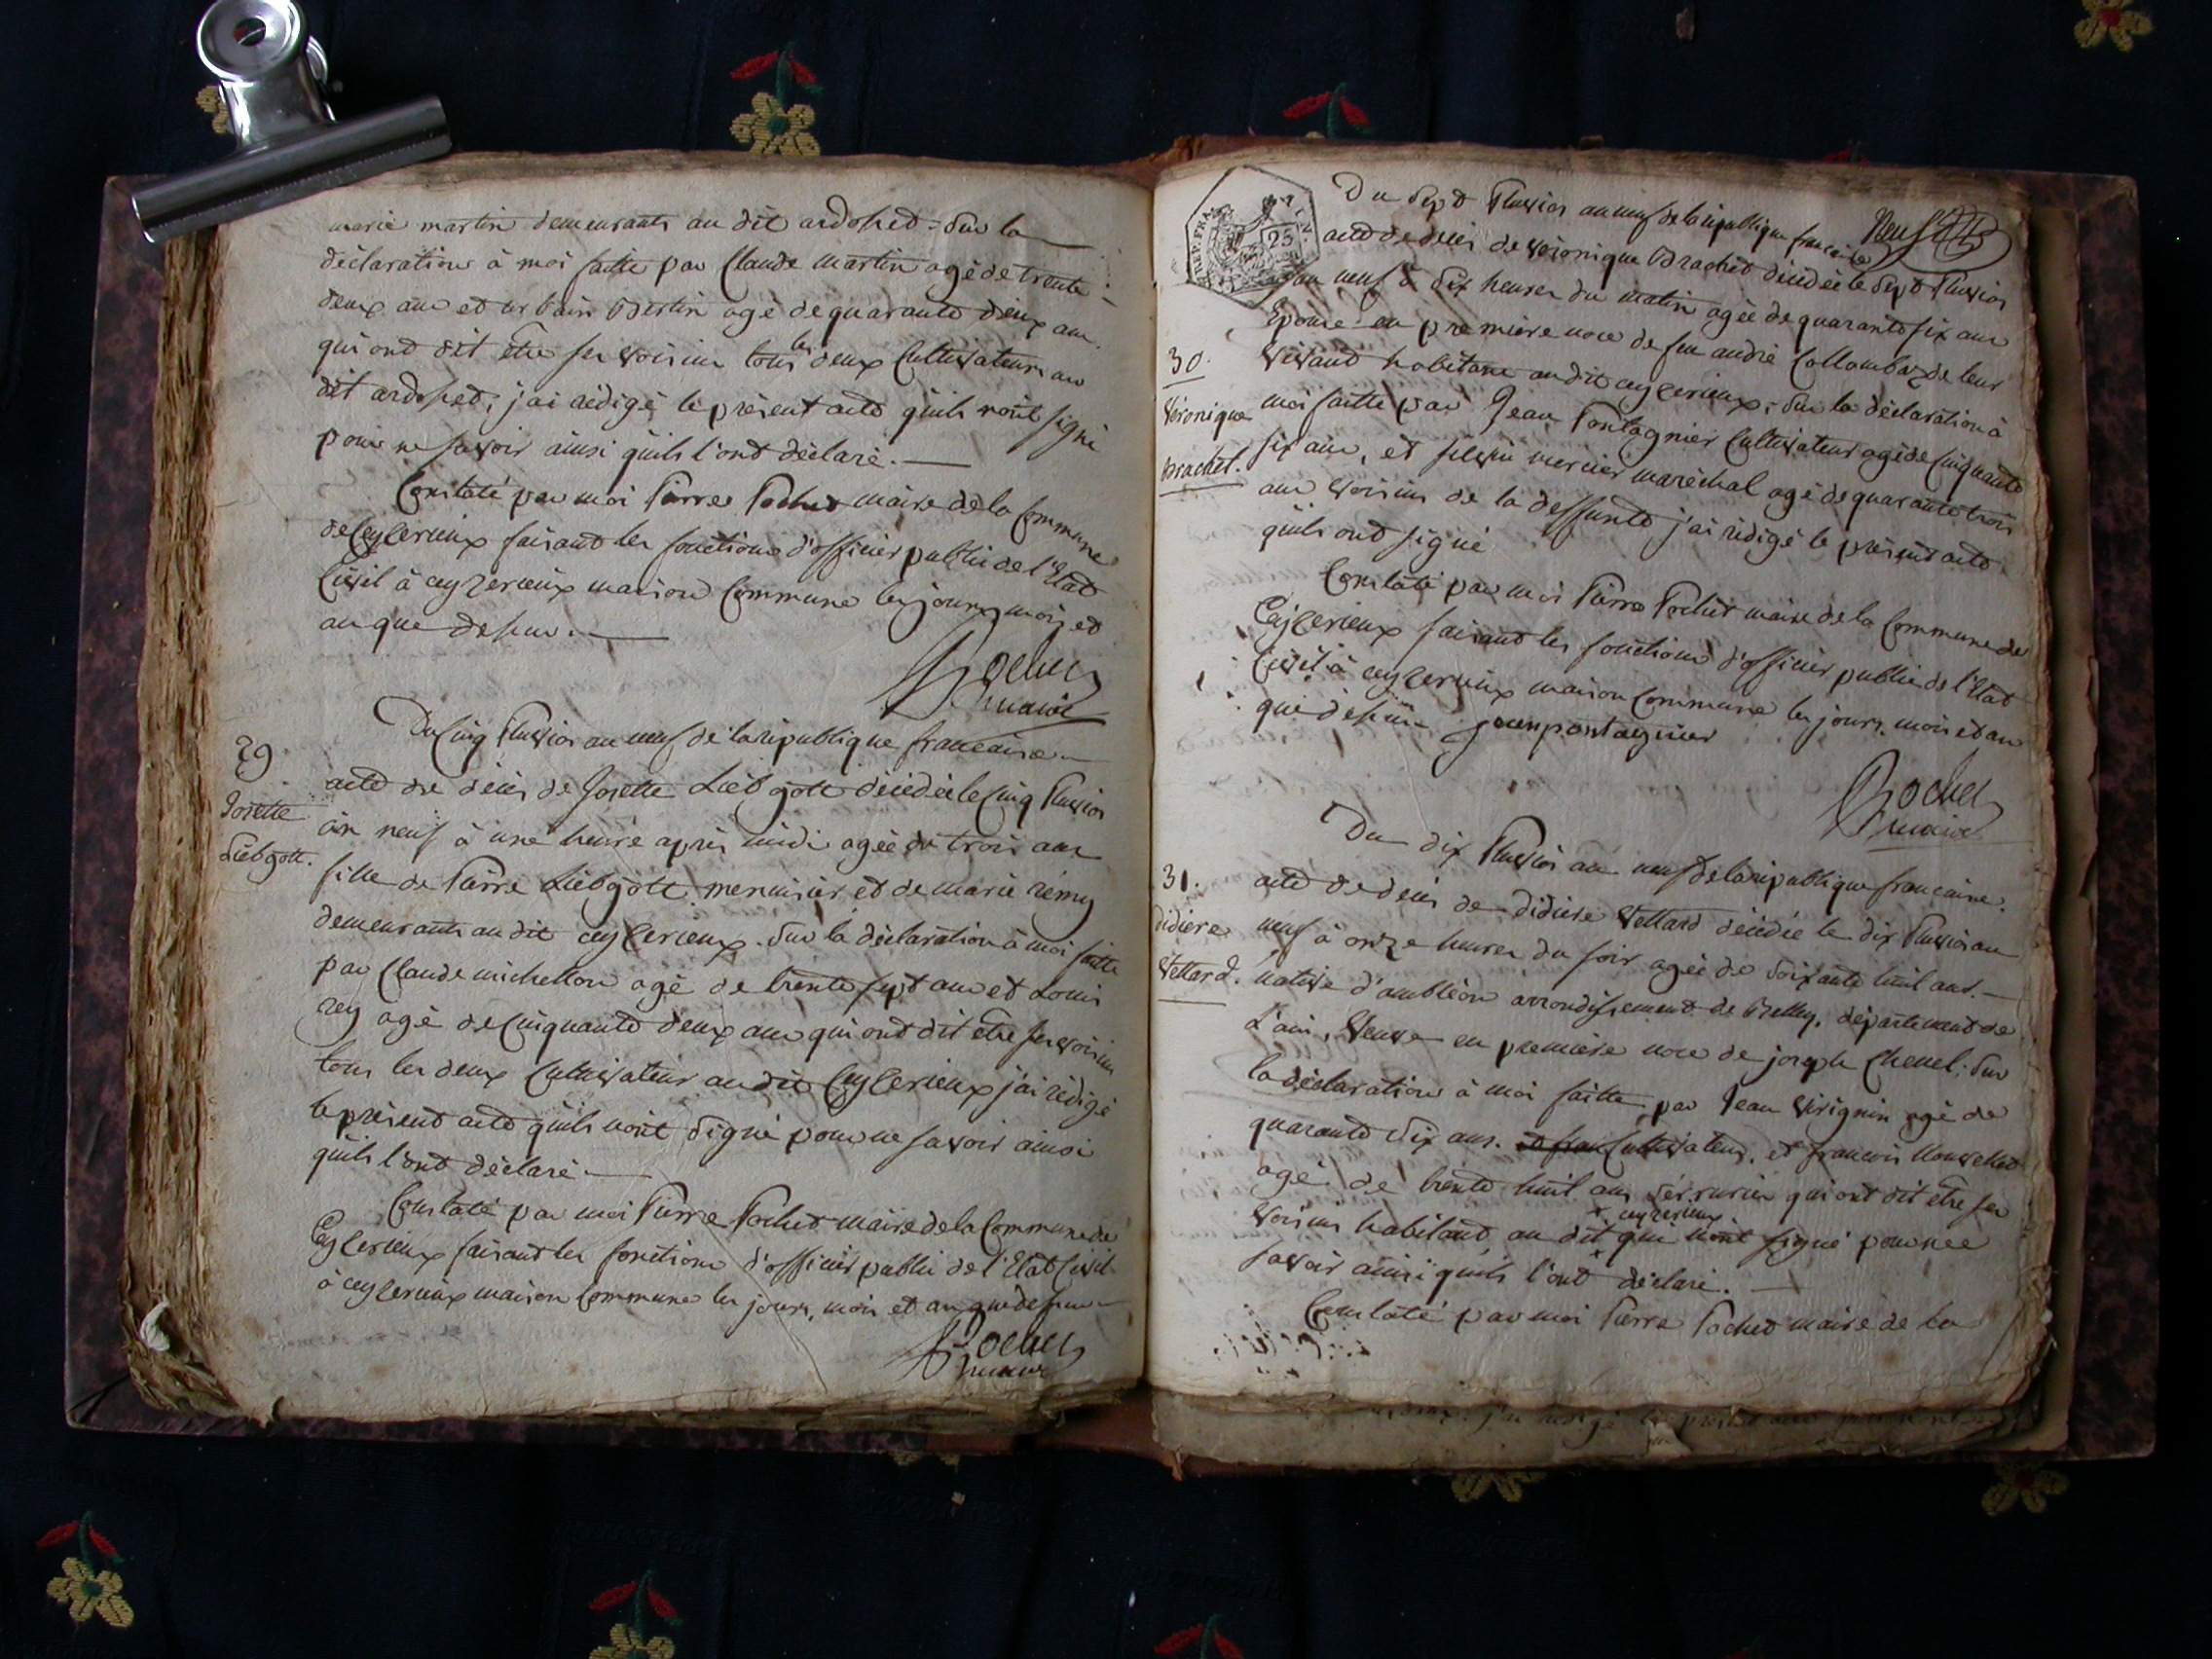 marie martin demeurants au dit ardosset. Sur la
déclaration à moi faitte par Claude martin agé de trente
deux ans et urbain Bertin agé de quarante deux ans.
qui ont dit être ses voisins tous les deux Cultivateurs au
dit ardosset; j'ai rédigé le présent acte qu'ils n'ont signé
pour ne savoir ainsi qu'ils l'ont déclaré.
Constaté par moi Pierre Pochet maire de la Commune
de Ceyzerieux faisant les fonctions d'officier public de l'Etat
Civil à ceyzerieux maison Commune les jours, mois et
an que dessus.
Pochet
maire
29
Josette
Liebgott.
Du Cinq Pluviôs an neuf de la république francaise
acte de décès de Josette Liebgott décédée le Cinq Pluviôs
an neuf à une heure après midi agée de trois ans
fille de Pierre Liebgott menuisier et de marie rémy
demeurants au dit ceyzerieux. Sur la déclaration à moi faitte
par Claude michellon agé de trente sept ans et Louis
rey agé de Cinquante deux ans qui ont dit être ses voisins
tous les deux Cultivateurs au dit Ceyzerieux j'ai rédigé
le présent acte qu'ils n'ont signé pour ne savoir ainsi
qu'ils l'ont déclaré
Constaté par moi Pierre Pochet maire de la Commune de
Ceyzerieux faisant les fonctions d'officier public de l'Etat Civil
à ceyzerieux maison Commune les jours, mois et an que dessus
Pochet
maire
25
Neuf
Du Sept Pluviôs an neuf de la république francaise
acte de décès de véronique Brachet décédée le Sept Pluviôs
an neuf à dix heures du matin agée de quarante six ans
Epouse en première noce de feu andré Collomb de leur
30.
Véronique
brachet.
vivant habitans au dit ceyzerieux; Sur la déclaration à
moi faitte par Jean Pontagnier Cultivateur agé de Cinquante
six ans, et silvin mercier maréchal agé de quarante trois
ans voisins de la deffunte j'ai rédigé le présent acte
qu'ils ont signé
Constaté par moi Pierre Pochet maire de la Commune de
Ceyzerieux faisant les fonctions d'officier public de l'Etat
Civil à ceyzerieux maison Commune les jours, mois et an
que dessus jean pontagnier
Pochet
maire
31.
Didière
Vettard.
Du dix Pluviôs an neuf de la république francaise.
acte de décès de didière Vettard décédée le dix Pluviôs an
neuf à onze heures du soir agée de Soixante huit ans.
native d'ambléon arrondissement de Belley, département de
L'ain, Veuve en première noce de joseph Chenel; Sur
la déclaration à moi faitte par Jean Virignin agé de
quarante Six ans. et fran Cultivateur. et francois
agé de trente huit ans Serrurier qui ont dit être ses
x ceyzerieux
voisins habitant au dit x qui n'ont signé pour ne
savoir ainsi qu'ils l'ont déclaré.
Constaté par moi Pierre Pochet maire de la